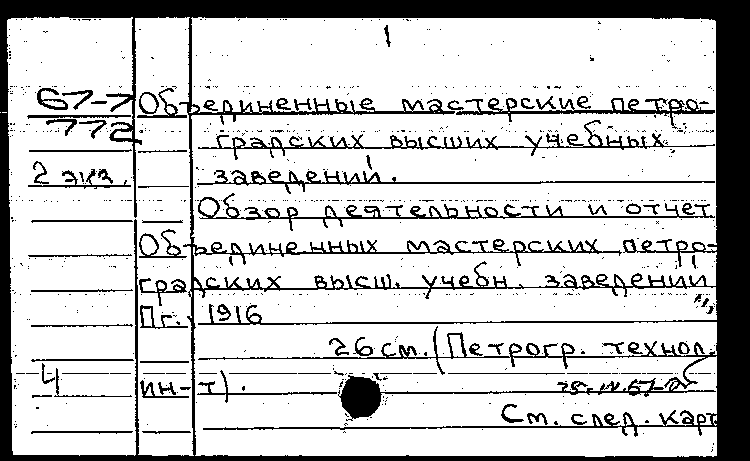 1
67-7 Объединенные мастерские петро-
772 градских высших учебных
2 экз. заведений.
Обзор деятельности и отчет
Объединенных мастерских петро-
градских высш. учебн. заведений
Пг., 1916
26 см. (Петрогр. технол.
4 ин-т).
См. след. карт